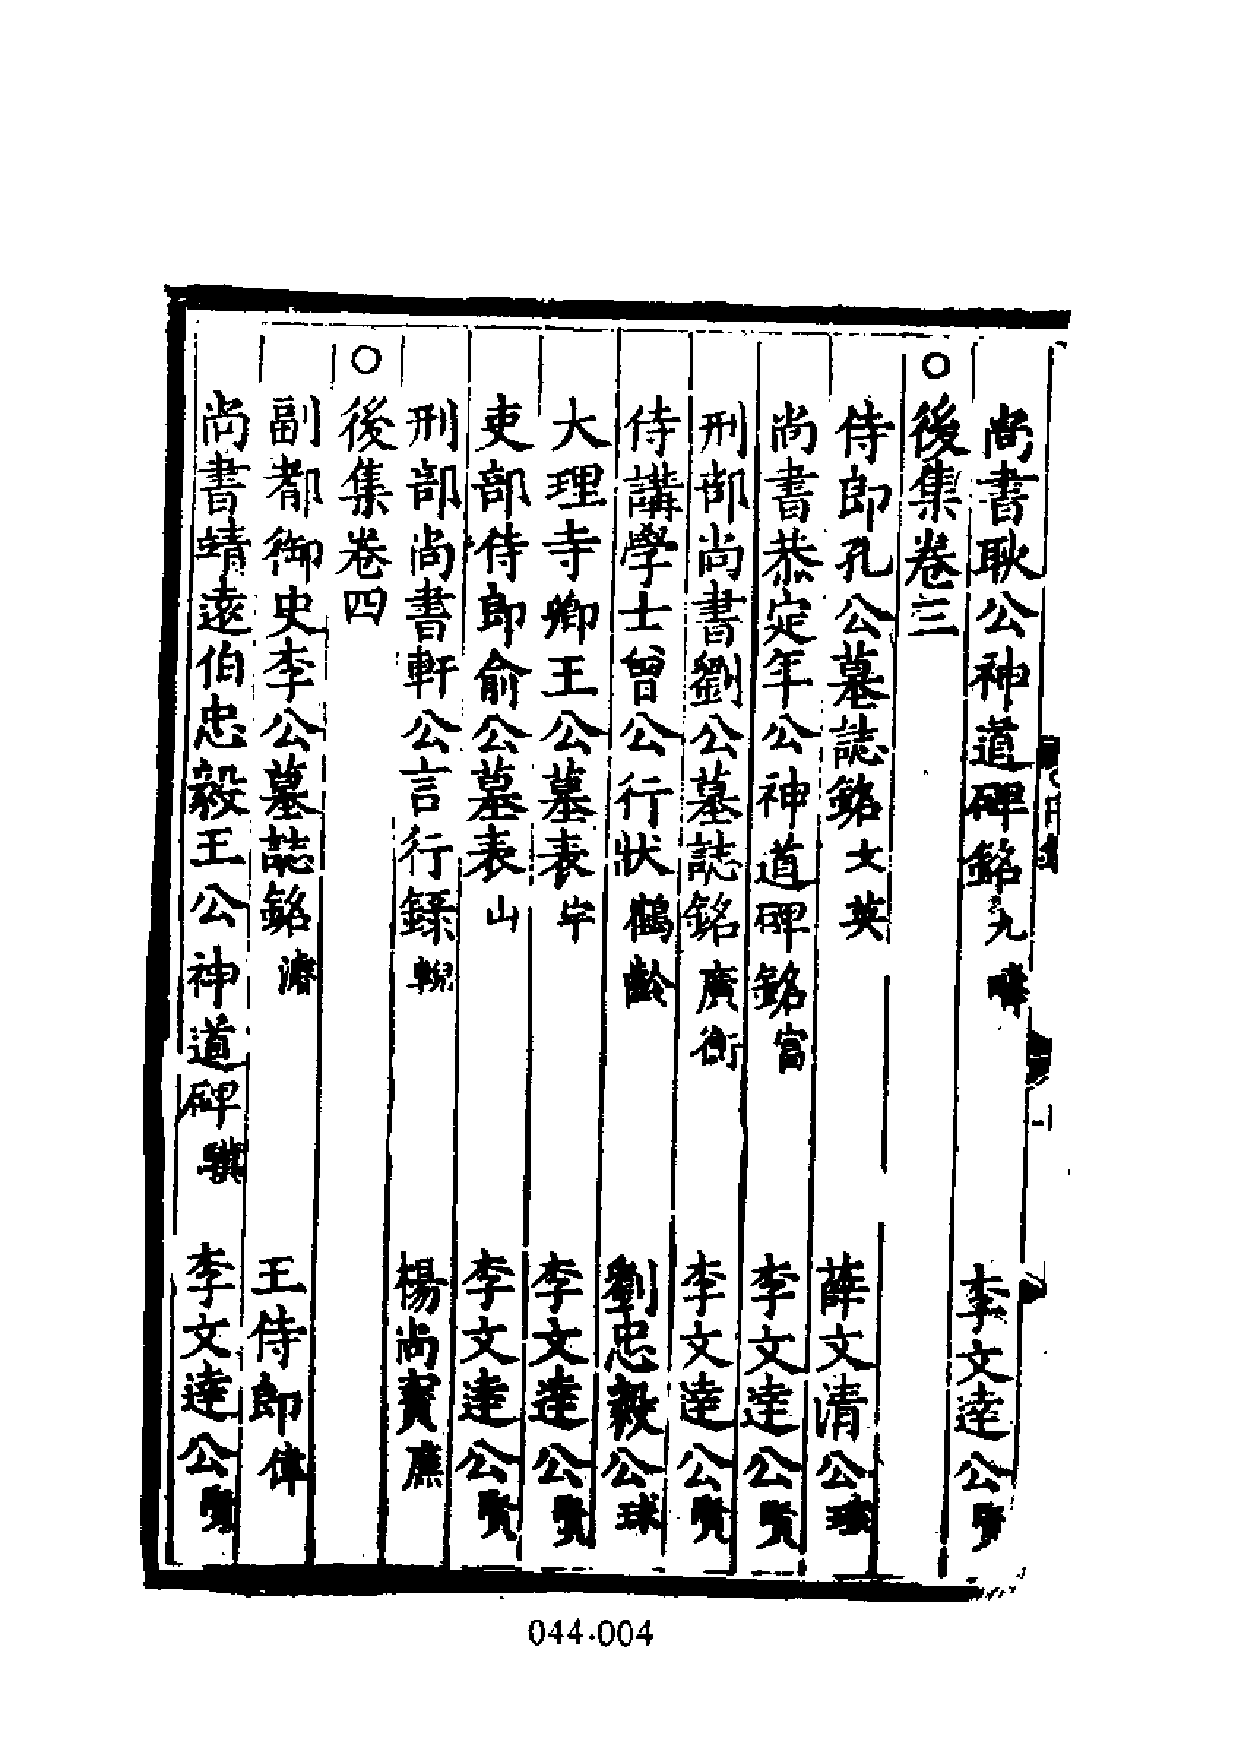 尚書耿公神道碑銘九疇 李文達公賢
○後集卷三
侍郎孔公墓誌銘文英 薛文清公瑄
尚書恭定年公神道碑銘富 李文達公賢
刑部尚書劉公墓誌銘廣衡 李文達公賢
侍講學士曾公行狀鶴齡 劉忠毅公球
大理寺卿王公墓表 李文達公賢
吏部侍郎俞公墓表山 李文達公賢
刑部尚書軒公言行錄輗 楊尚寳廉
○後集卷四
副都御史李公墓誌銘濬 王侍郎偉
尚書靖遠伯忠毅王公神道碑驥 李文達公賢
044.004